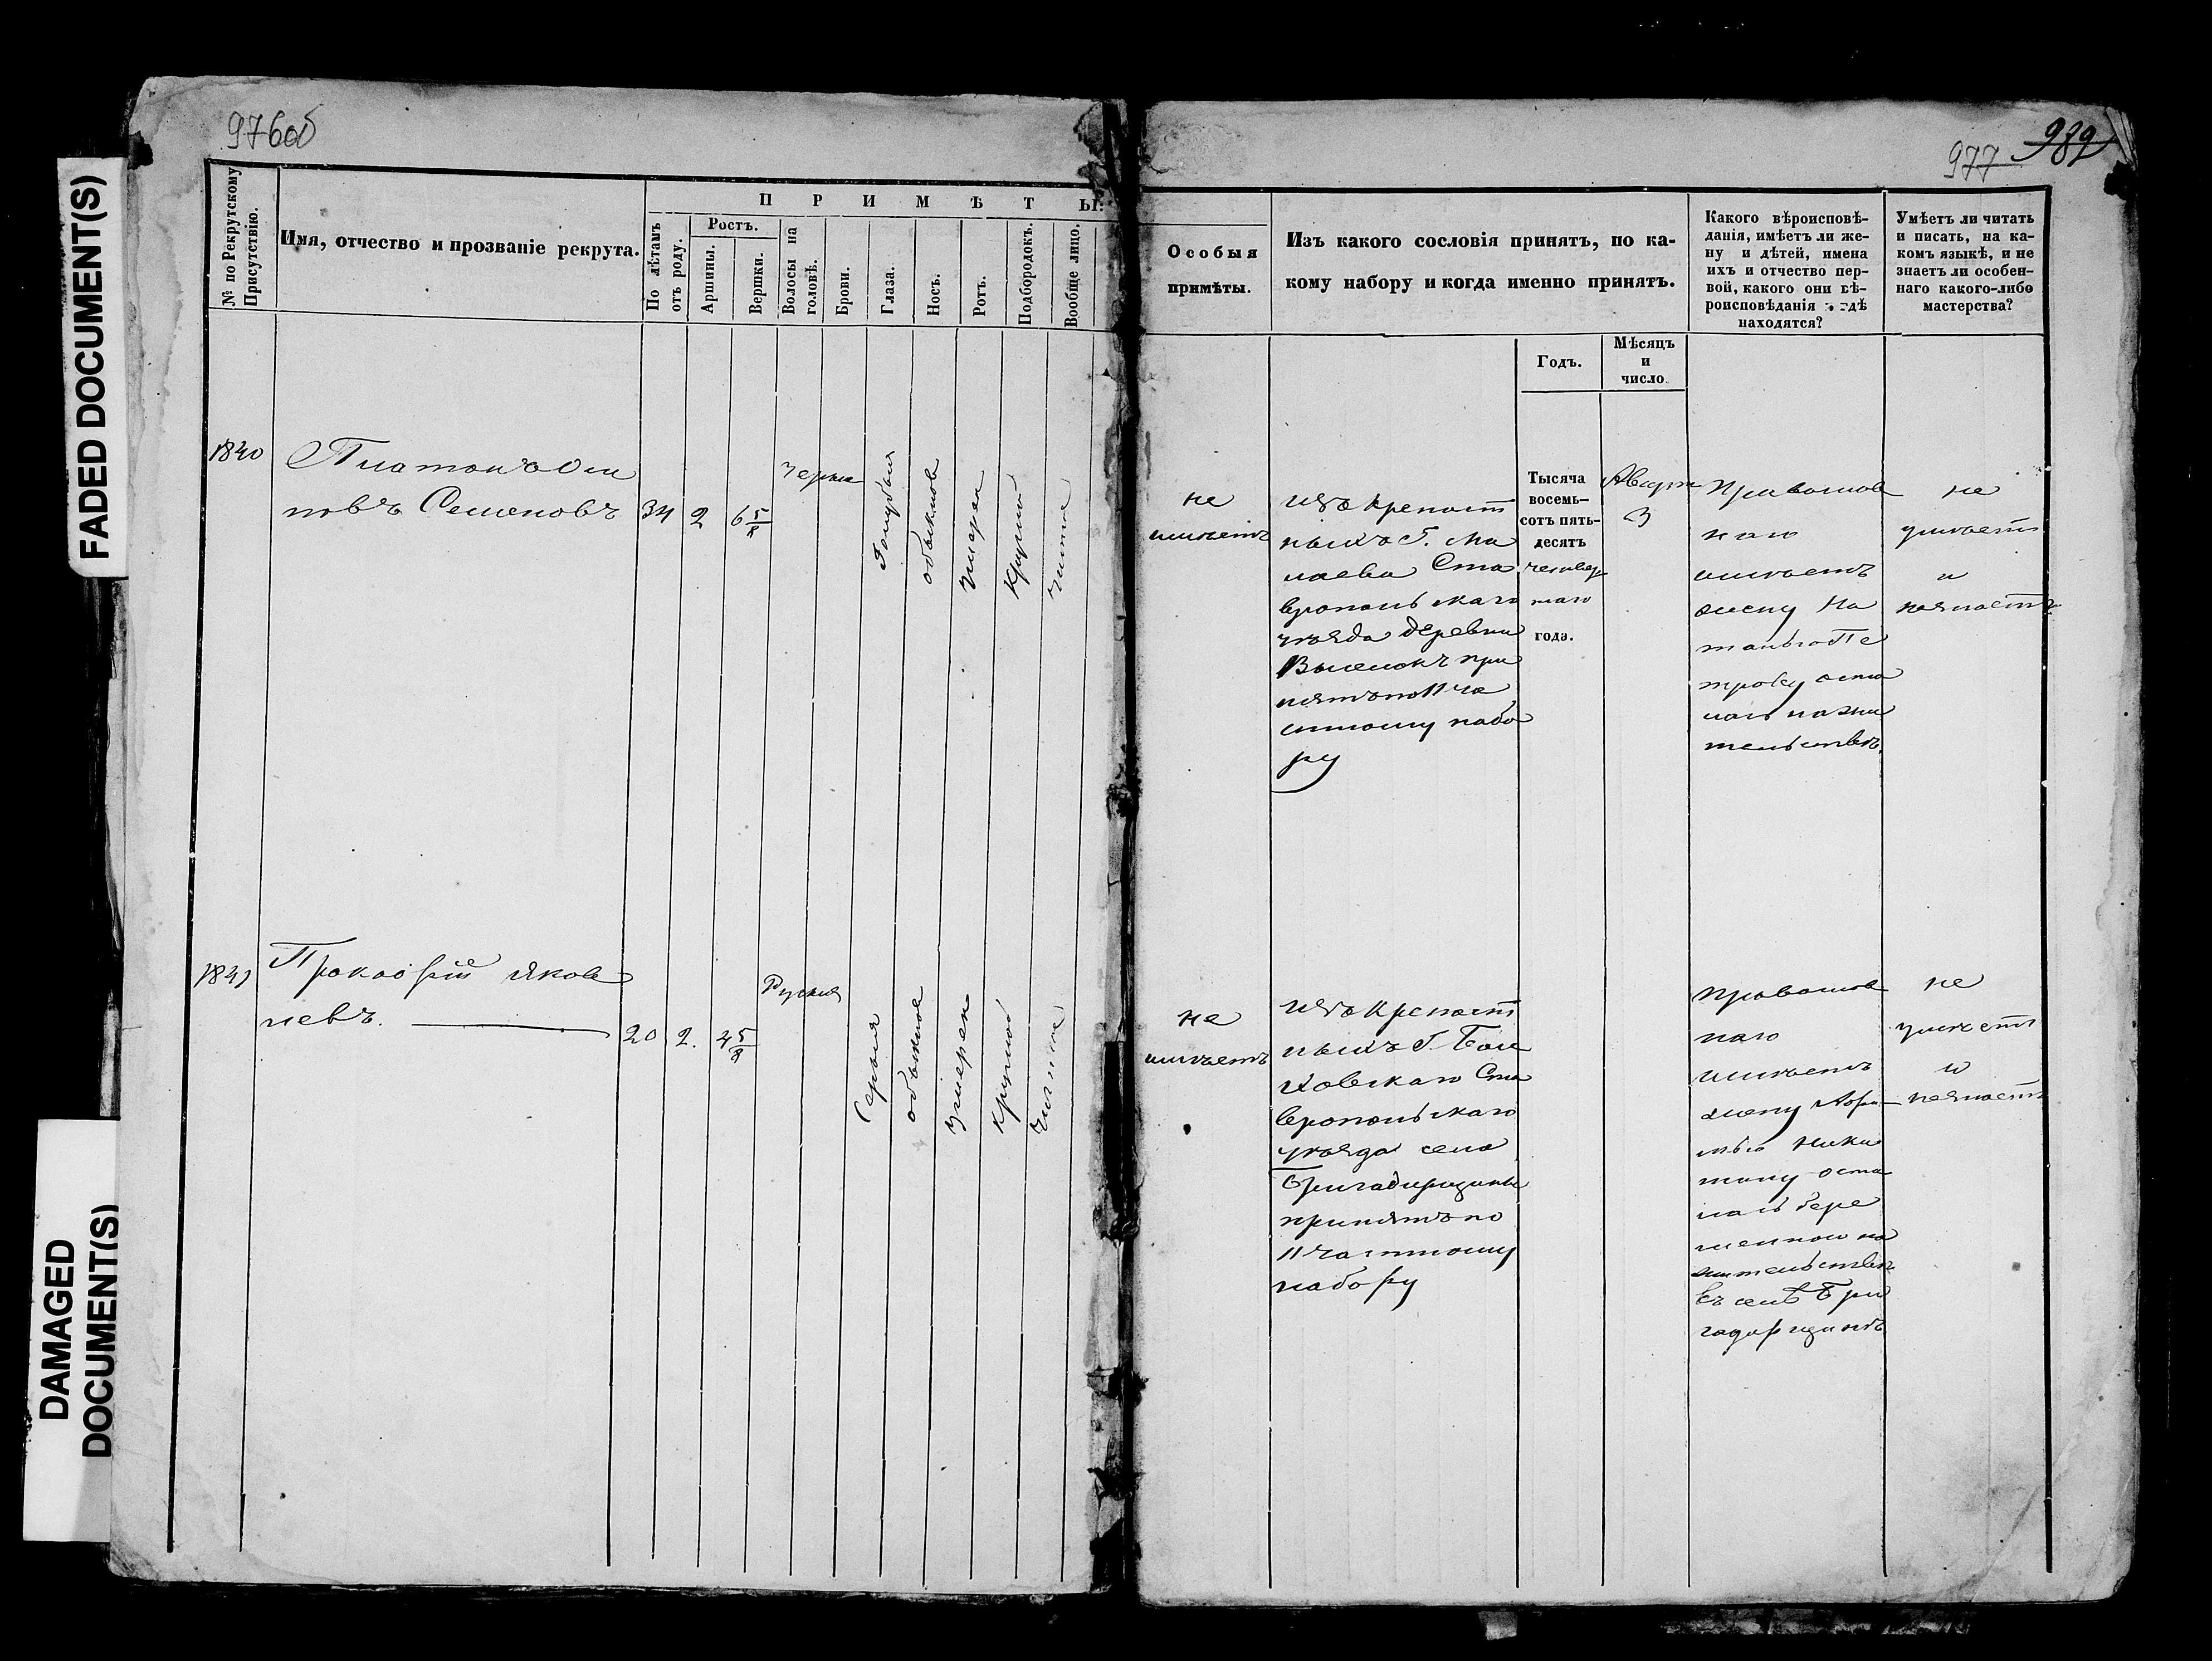 976об
977 982
FADED DOCUMENT(S)
DAMAGED
DOCUMENT(S)
№ по Рекрутскому
Присутствію.
Имя, отчество и прозваніе рекрута.
ПРИМѢТЫ.
По лѣтамъ
отъ роду.
Ростъ.
Аршины.
Вершки.
Волосы на
головѣ.
Брови.
Глаза.
Носъ.
Ротъ.
Подбородокъ.
Вообще лицо.
Особыя
примѣты.
Изъ какого сословія принятъ, по ка-
кому набору и когда именно принятъ.
Годъ.
Мѣсяцъ
и
число
Какого вѣроисповѣ-
данія, имѣетъ ли же-
ну и дѣтей, имена
ихъ и отчество пер-
вой, какого они вѣ-
роисповѣданія и гдѣ
находятся?
Умѣетъ ли читать
и писать, на ка-
комъ языкѣ, и не
знаетъ ли особен-
наго какого-либо
мастерства?
1840
Платонъ Оси
повъ Семеновъ
34
2
6 5/8
черные
Голубыя
обыкнов
умерен
Круглой
чистое
не
имѣетъ
изъ крепост
ныхъ Г. Ма
лаева Ста
вропольскаго
уѣзда деревни
Выселокъ при
нятъ по 11 ча
стному набо
ру
Тысяча
восемь-
сотъ пять-
десятъ
четвер
таго
года.
Август
3
Православ
наго
имѣетъ
жену На
талью Пе
трову оста
лась на жи
тельствѣ.
не
умѣетъ
и
незнаетъ
1841
Прокофій Яков
левъ.
20
2.
4 5/8
Русыя
Серыя
обыкное
умерен
круглой
чистое
не
имѣетъ
изъ крепост
ныхъ Г. Бол
ховскаго Ста
вропольскаго
уѣзда села
Бригадирщины
принятъ по
11 частному
набору
Православ
наго
имѣетъ
жену Афи
мью Ники
тину оста
лась бере
менною на
жительствѣ
въ селѣ Бри
гадирщинѣ
не
умѣетъ
и
незнаетъ